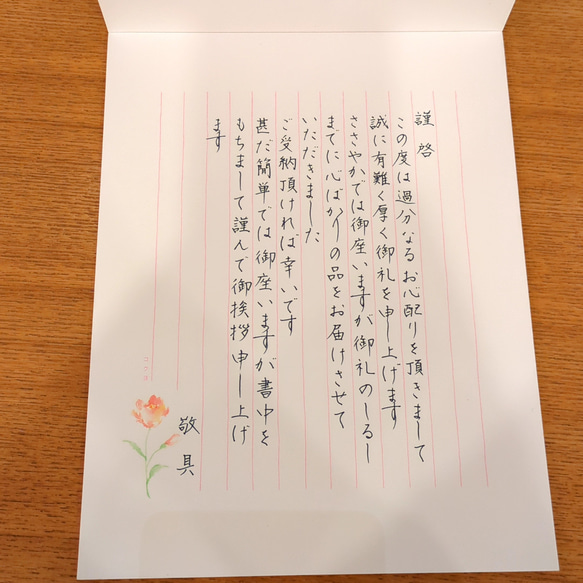 謹啓
この度は過分なるお心配りを頂きまして
誠に有難く厚く御礼を申し上げます
ささやかでは御座いますが御礼のしるし
までに心ばかりの品をお届けさせて
いただきました
ご受納頂ければ幸いです
甚だ簡単では御座いますが書中を
もちまして謹んで御挨拶申し上げ
ます
敬具